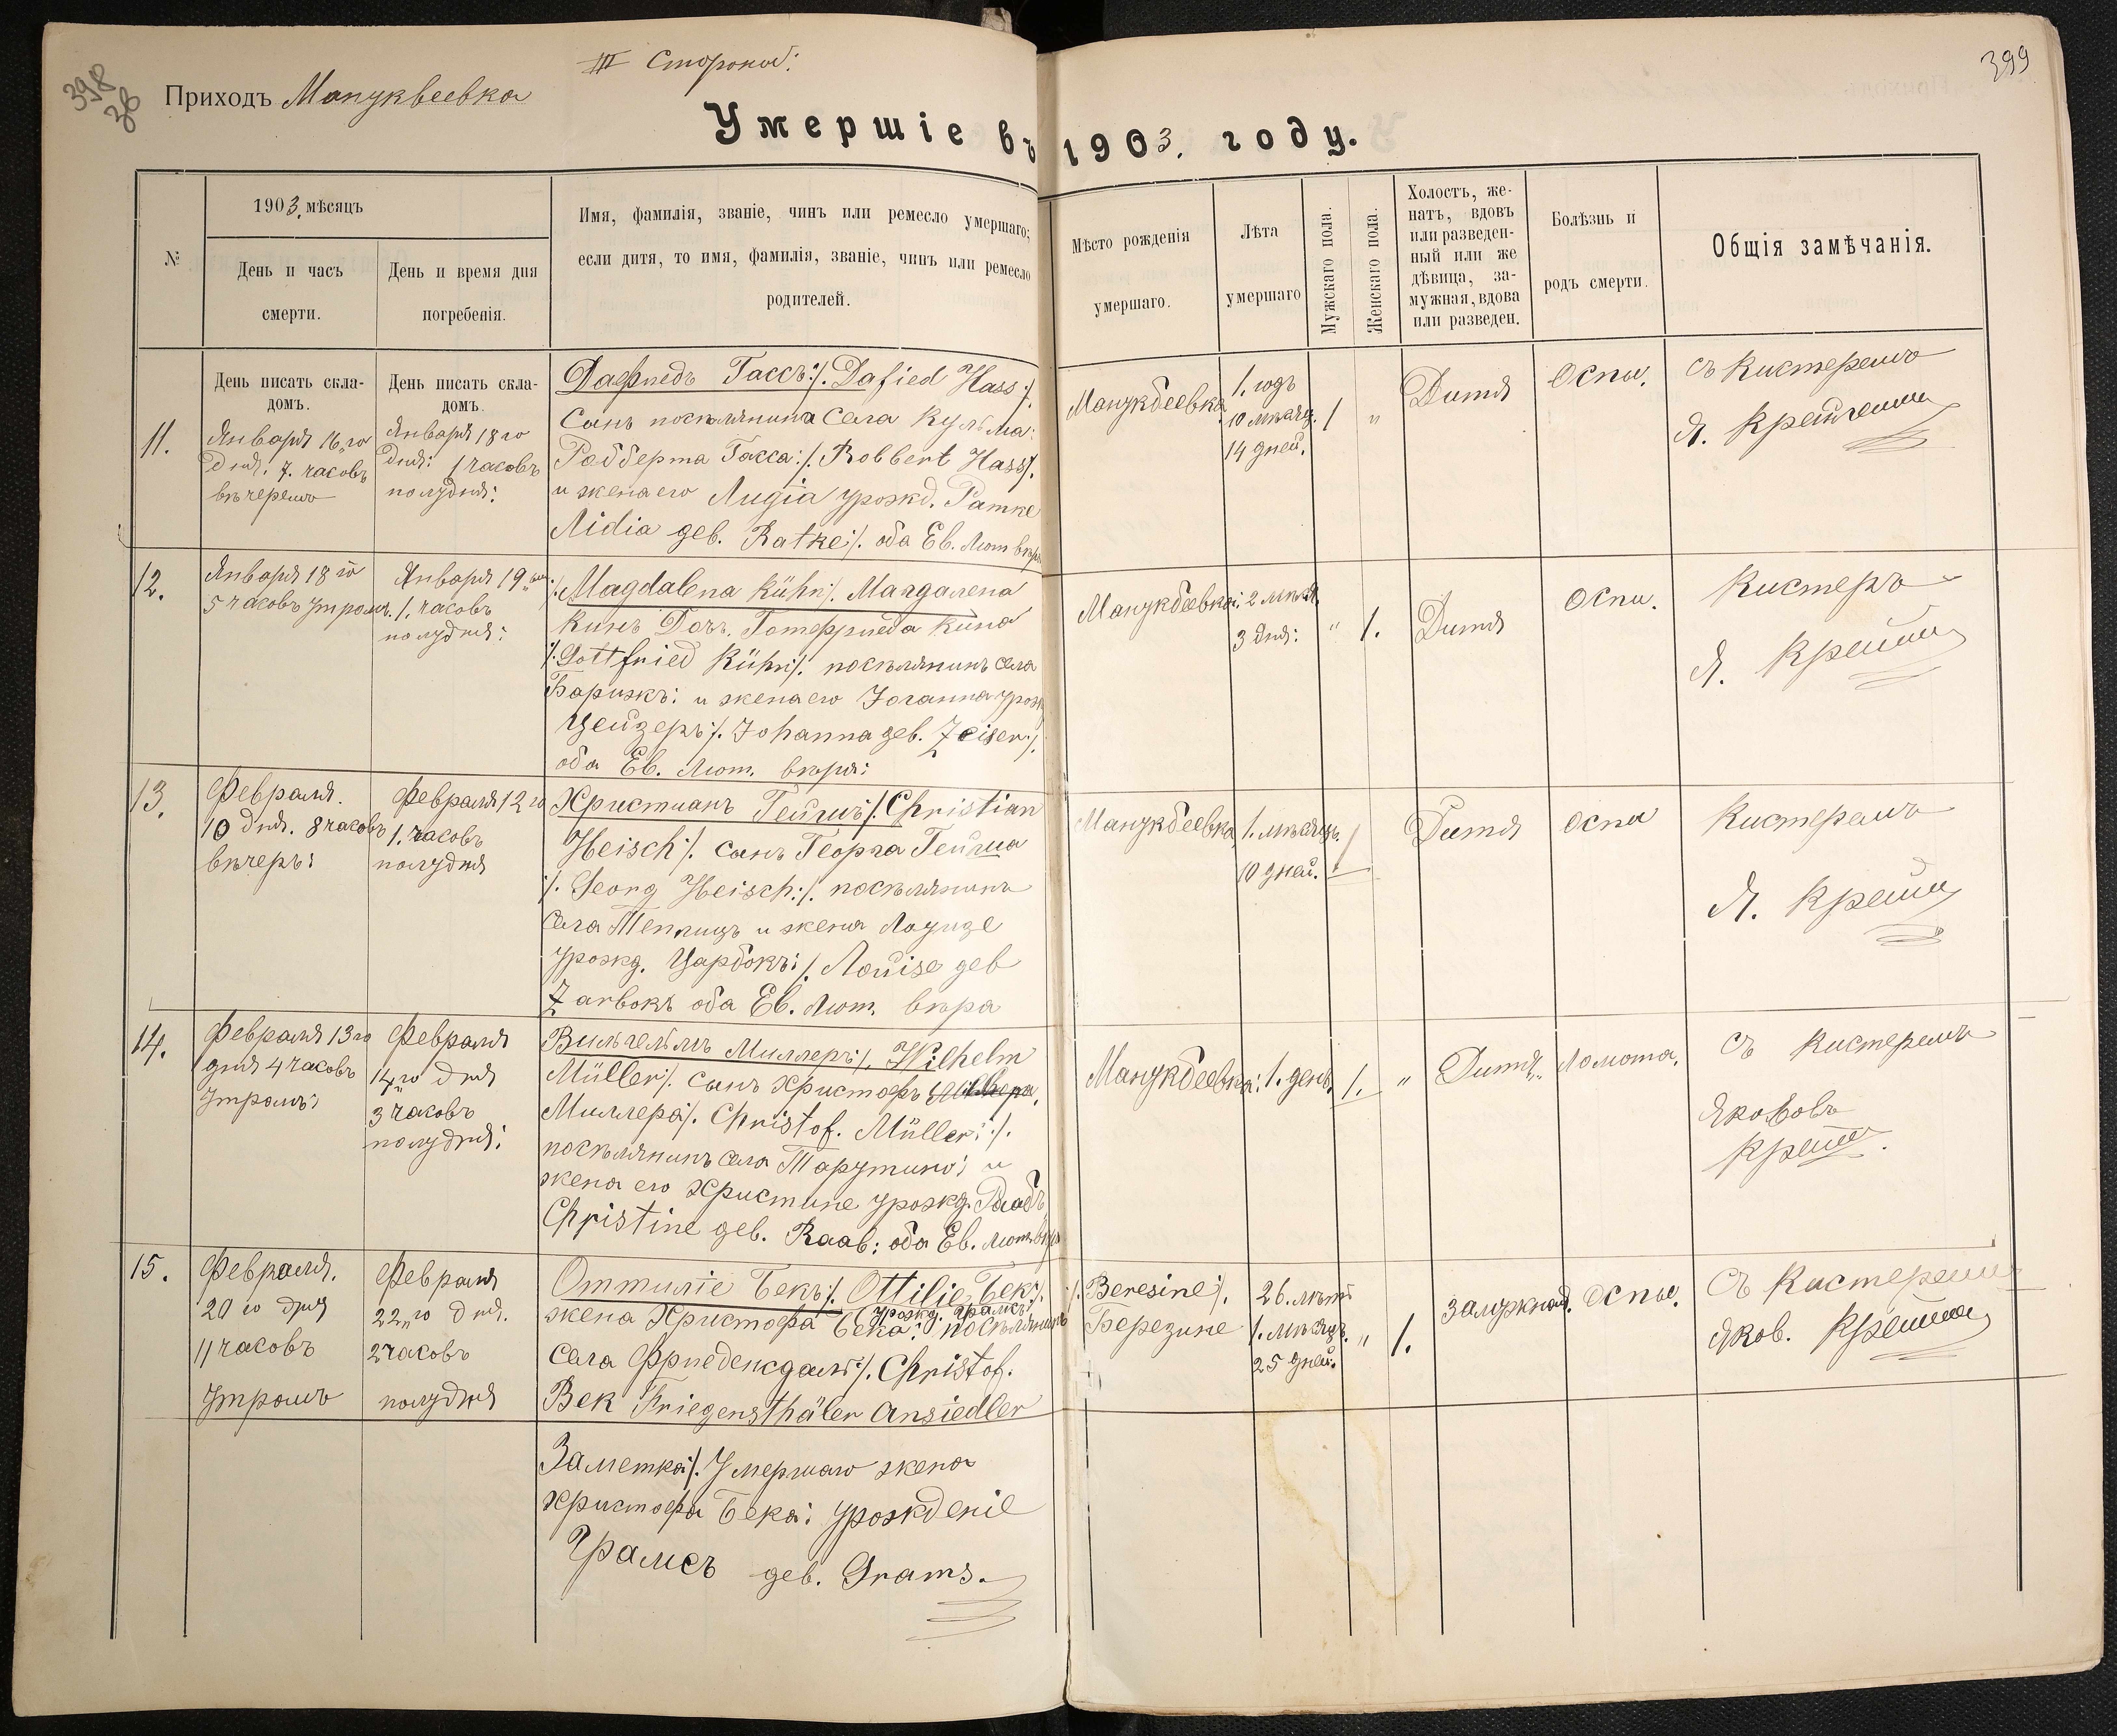 398
38
III Стороной:
399
Приходъ Манукбеевка
Умершіе въ 1903. году.
№
1903. мѣсяцъ
День и часъ
смерти.
День и время дня
погребенія.
Имя, фамилія, званіе, чинъ или ремесло умершаго;
если дитя, то имя, фамилія, званіе, чинъ или ремесло
родителей.
Мѣсто рожденія
умершаго.
Лѣта
умершаго
Мужскаго пола.
Женскаго пола.
Холостъ, же-
натъ, вдовъ
или разведен-
ный или же
дѣвица, за-
мужная, вдова
или разведен.
Болѣзнь и
родъ смерти.
Общія замѣчанія.
День писать скла-
домъ.
День писать скла-
домъ.
11.
Января 16,,го
дня. 7. часовъ
вѣчеремъ
Января 18 го
дня: 1 часовъ
полудня:
Дафиедъ Гассъ:/. Dafied Hass:/.
Сынъ поселянина Села Кульма:
Робберта Гасса:/. Robbert Hass/.
и жена его Лидіа урожд. Ратке
Lidia geb. Ratke:/. оба Ев. Лют вѣры
Манукбеевка
1. годъ
10 мѣсяц.
14 дней.
1
"
Дитя
Оспи.
съ Кистеремъ
Я.
12.
Января 18 го
5 часовъ утромъ.
Января 19
1. часовъ
полудня:
:/. Magdalena Kühn/. Магдалена
Кинъ Дочь. Готефрида Кина
:/. Gottfried Kühn/. поселянинъ села
Парижъ: и жена его Іоганна урожд
Цейзеръ/. Johanna geb. Zeiser:/.
оба Ев. Лют. вѣри:
Манукбеевка:
2 мѣся.
3 дня:
"
1.
Дитя
оспи.
Кистеръ
Я.
13.
Февраля.
10 дня. 8 часовъ
вѣчеръ:
Февраля 12 го
1. часовъ
полудня
Христианъ Гейшъ/. Christian
Heisch/. сынъ Георга Гейша
:/. Georg Heisch:/. поселянинъ
села Теплицъ и жена Лоуизе
урожд. Царбокъ:/. Louise geb
Zarbokъ оба Ев. Лют. вѣра
Манукбеевка
1. мѣсяцъ.
10 дней.
1
Дитя
оспи
Кистеремъ
Я.
14.
Февраля 13го
дня 4 часовъ
Утромъ:
Февраля
14,,го дня
3 часовъ
полудня:
Вильгельмъ Миллеръ:/. Wilhelm
Müller/. сынъ Христофъ
Миллера/. Christof. Müller:/.
поселянинъ села Тарутино: и
жена его Христине урожд. Раабъ
Christine geb. Raab: оба Ев. Лют вѣра
Манукбеевка:
1. день.
1.
"
Дитя,
Ломота.
съ Кистеремъ
Яковъ
15.
Февраля.
20 го дня
11 часовъ
Утромъ
Февраля
22,,го дня.
2 часовъ
полудня
Оттиліе Бекъ:/. Ottilie Бек:/.
урожд. Грамсъ:
жена Христофа Бека: поселянинъ
села Фриеденсдаль:/. Christof.
Век Friegensthäler Ansiedler
:/. Beresine:/.
Березине
26. лѣтъ
1. мѣсяцъ.
25 дней.
"
1.
Замужная.
оспы.
Съ Кистеремъ
Яков.
Заметка:/. Умершаго жена
Христофа Бека: урожденіе
Грамсъ geb. Grams.